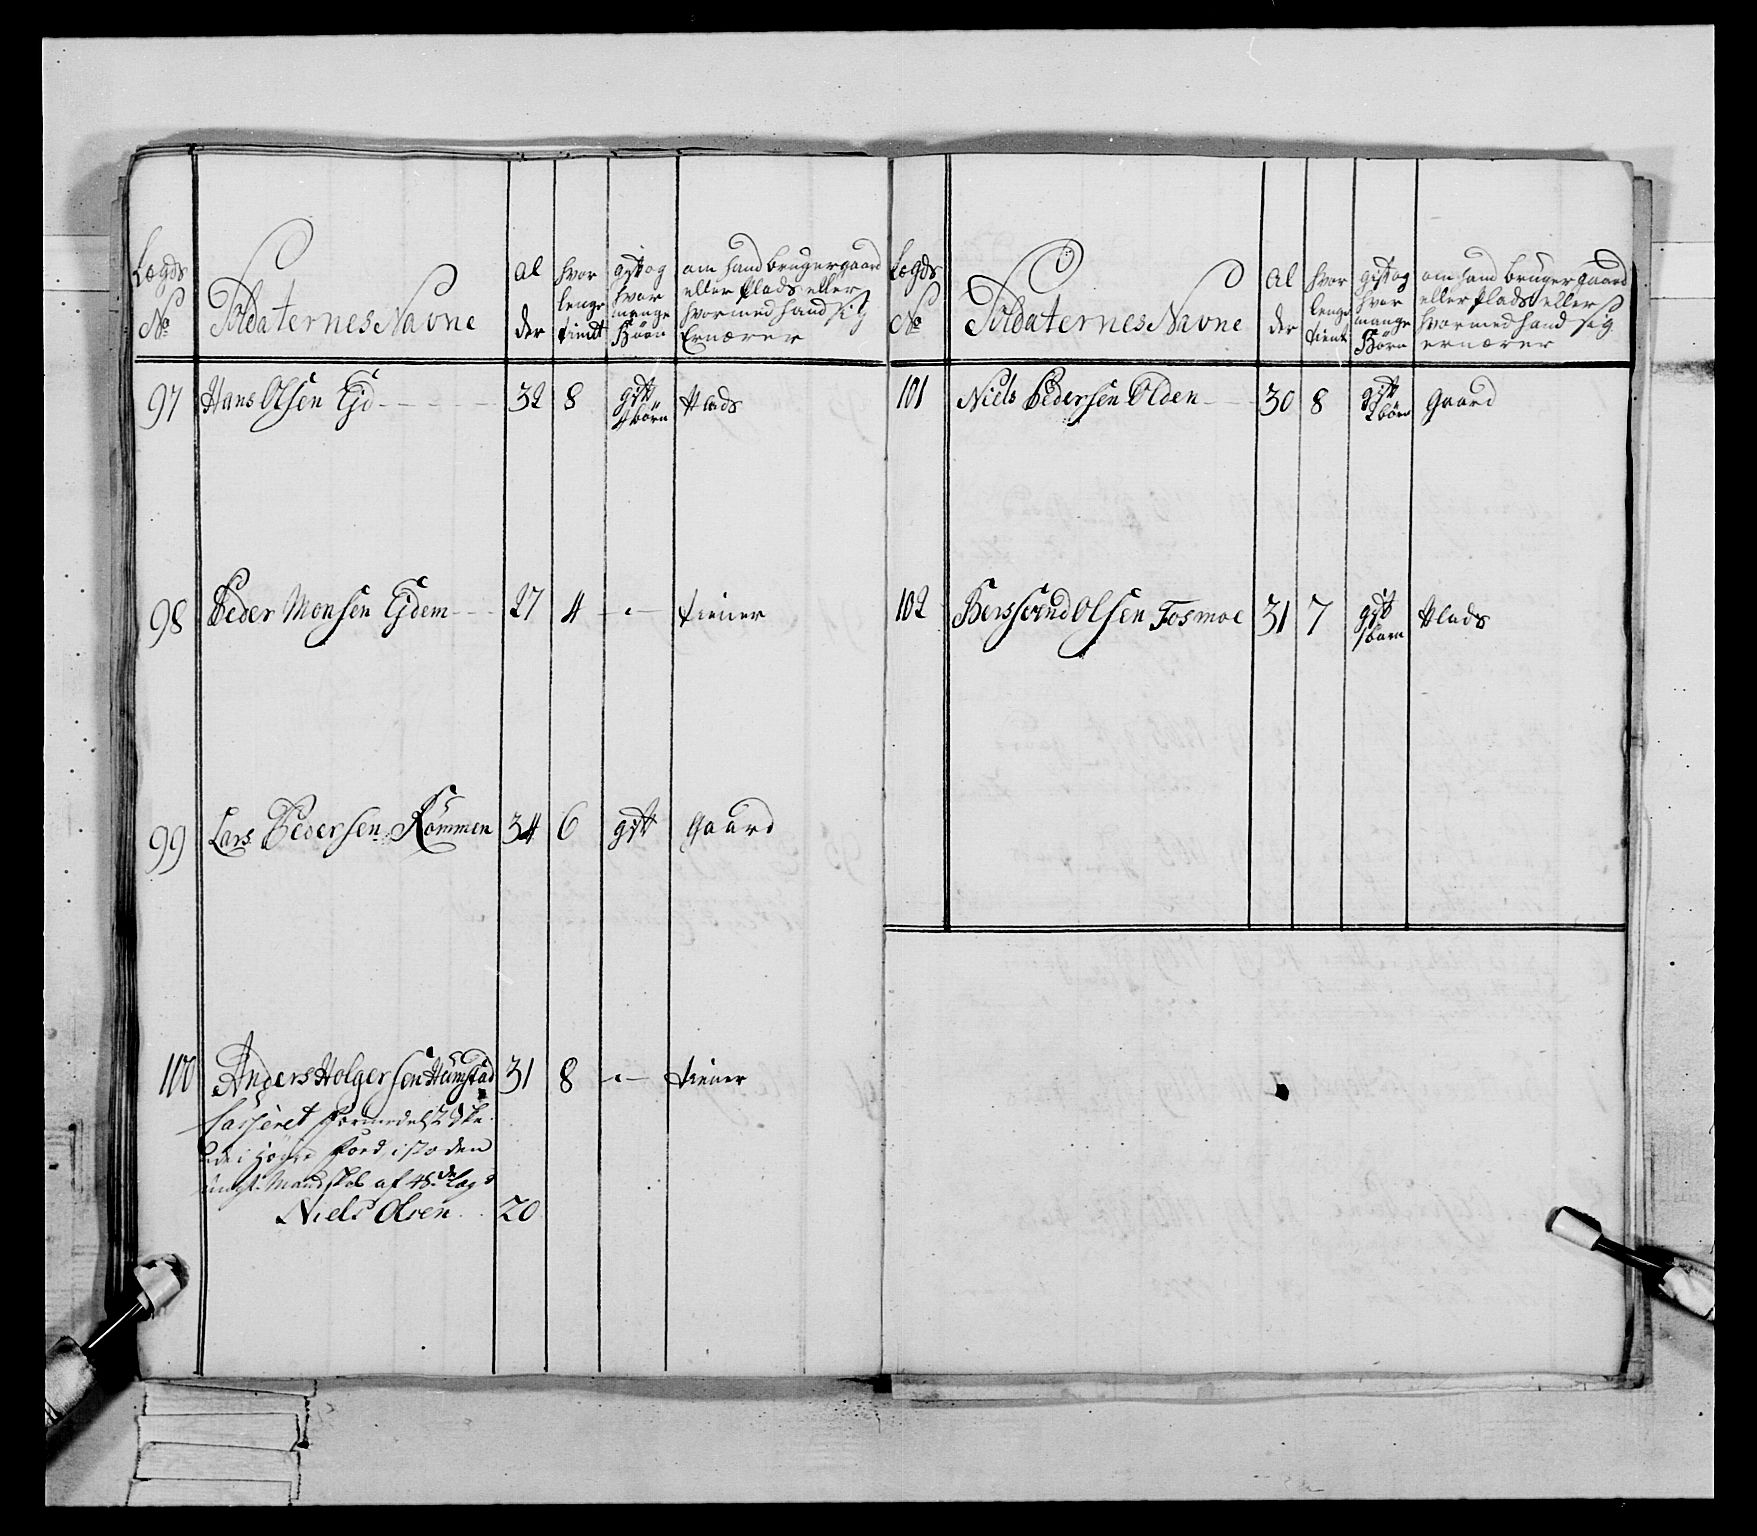 Lægds No
Soldaternes Navne
Al der
hvor lenge tient
gift og hvor mange Børn
om hand bruger gaard eller Plads eller hvormed hand sig Ernærer
97 Hans Olsen Ejd - - - 32 8 gift børn Plads
98 Peder Monsen Ejdem - - - 27 4 - - tiener
99 Lars Pedersen Römmen 34 6 gift Gaard
100 Anders Holgersen Hamstad 31 8 - - tiener
Casseret formedelst
i høyre ford, isteden
Mandskab af 48de læg
Niels Olsen 20
Lægds No
Soldaternes Navne
Al der
hvor lenge tient
gift og hvor mange Börn
om hand bruger gaard eller Plads eller hvormed hand sig ernærer
101 Niels Pedersen Olden - - 30 8 gift 2 børn Gaard
102 Berssvend Olsen Fosmoe 31 7 gift 1 barn Plads